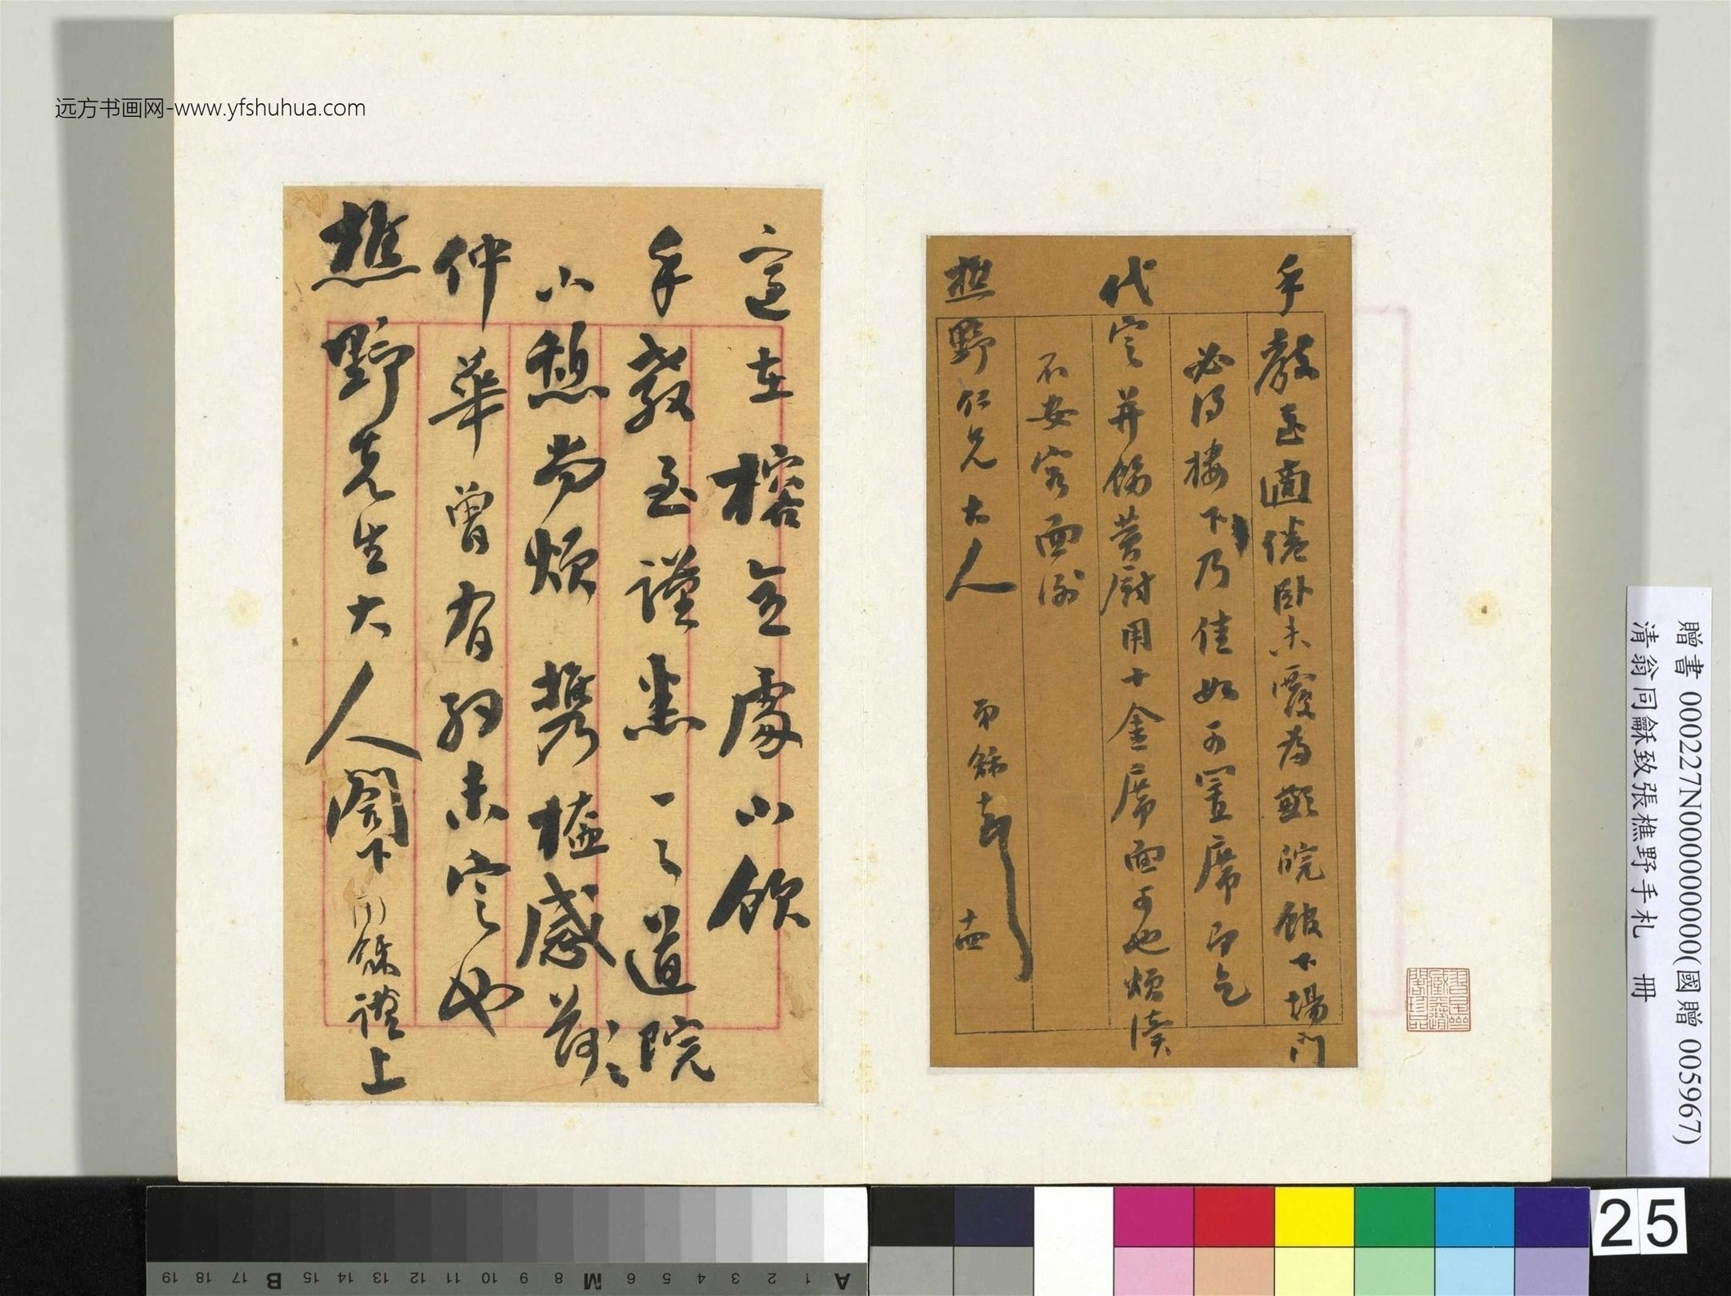 远方书画网-www.yfshuhua.com
手教至適倦臥未覆為歉皖館下場門
必得樓下乃佳如可置席即乞
代定并飭營廚用十金席面可也煩瀆
不安容面謝
樵野仁兄大人
弟龢頓首
十四
適在榕全處小飲
手教至謹悉一之道院
小憩尚煩攜榼感荷
仲華曾有約未定也
樵野先生大人閣下
龢謹上
贈書 000227N000000000(國贈 005967)
清翁同龢致張樵野手札 冊
25
A 1 2 3 4 5 6 M 8 9 10 11 12 13 14 15 B 17 18 19